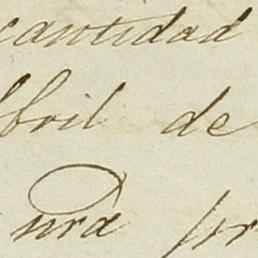 cantidad
bril de
nra pr